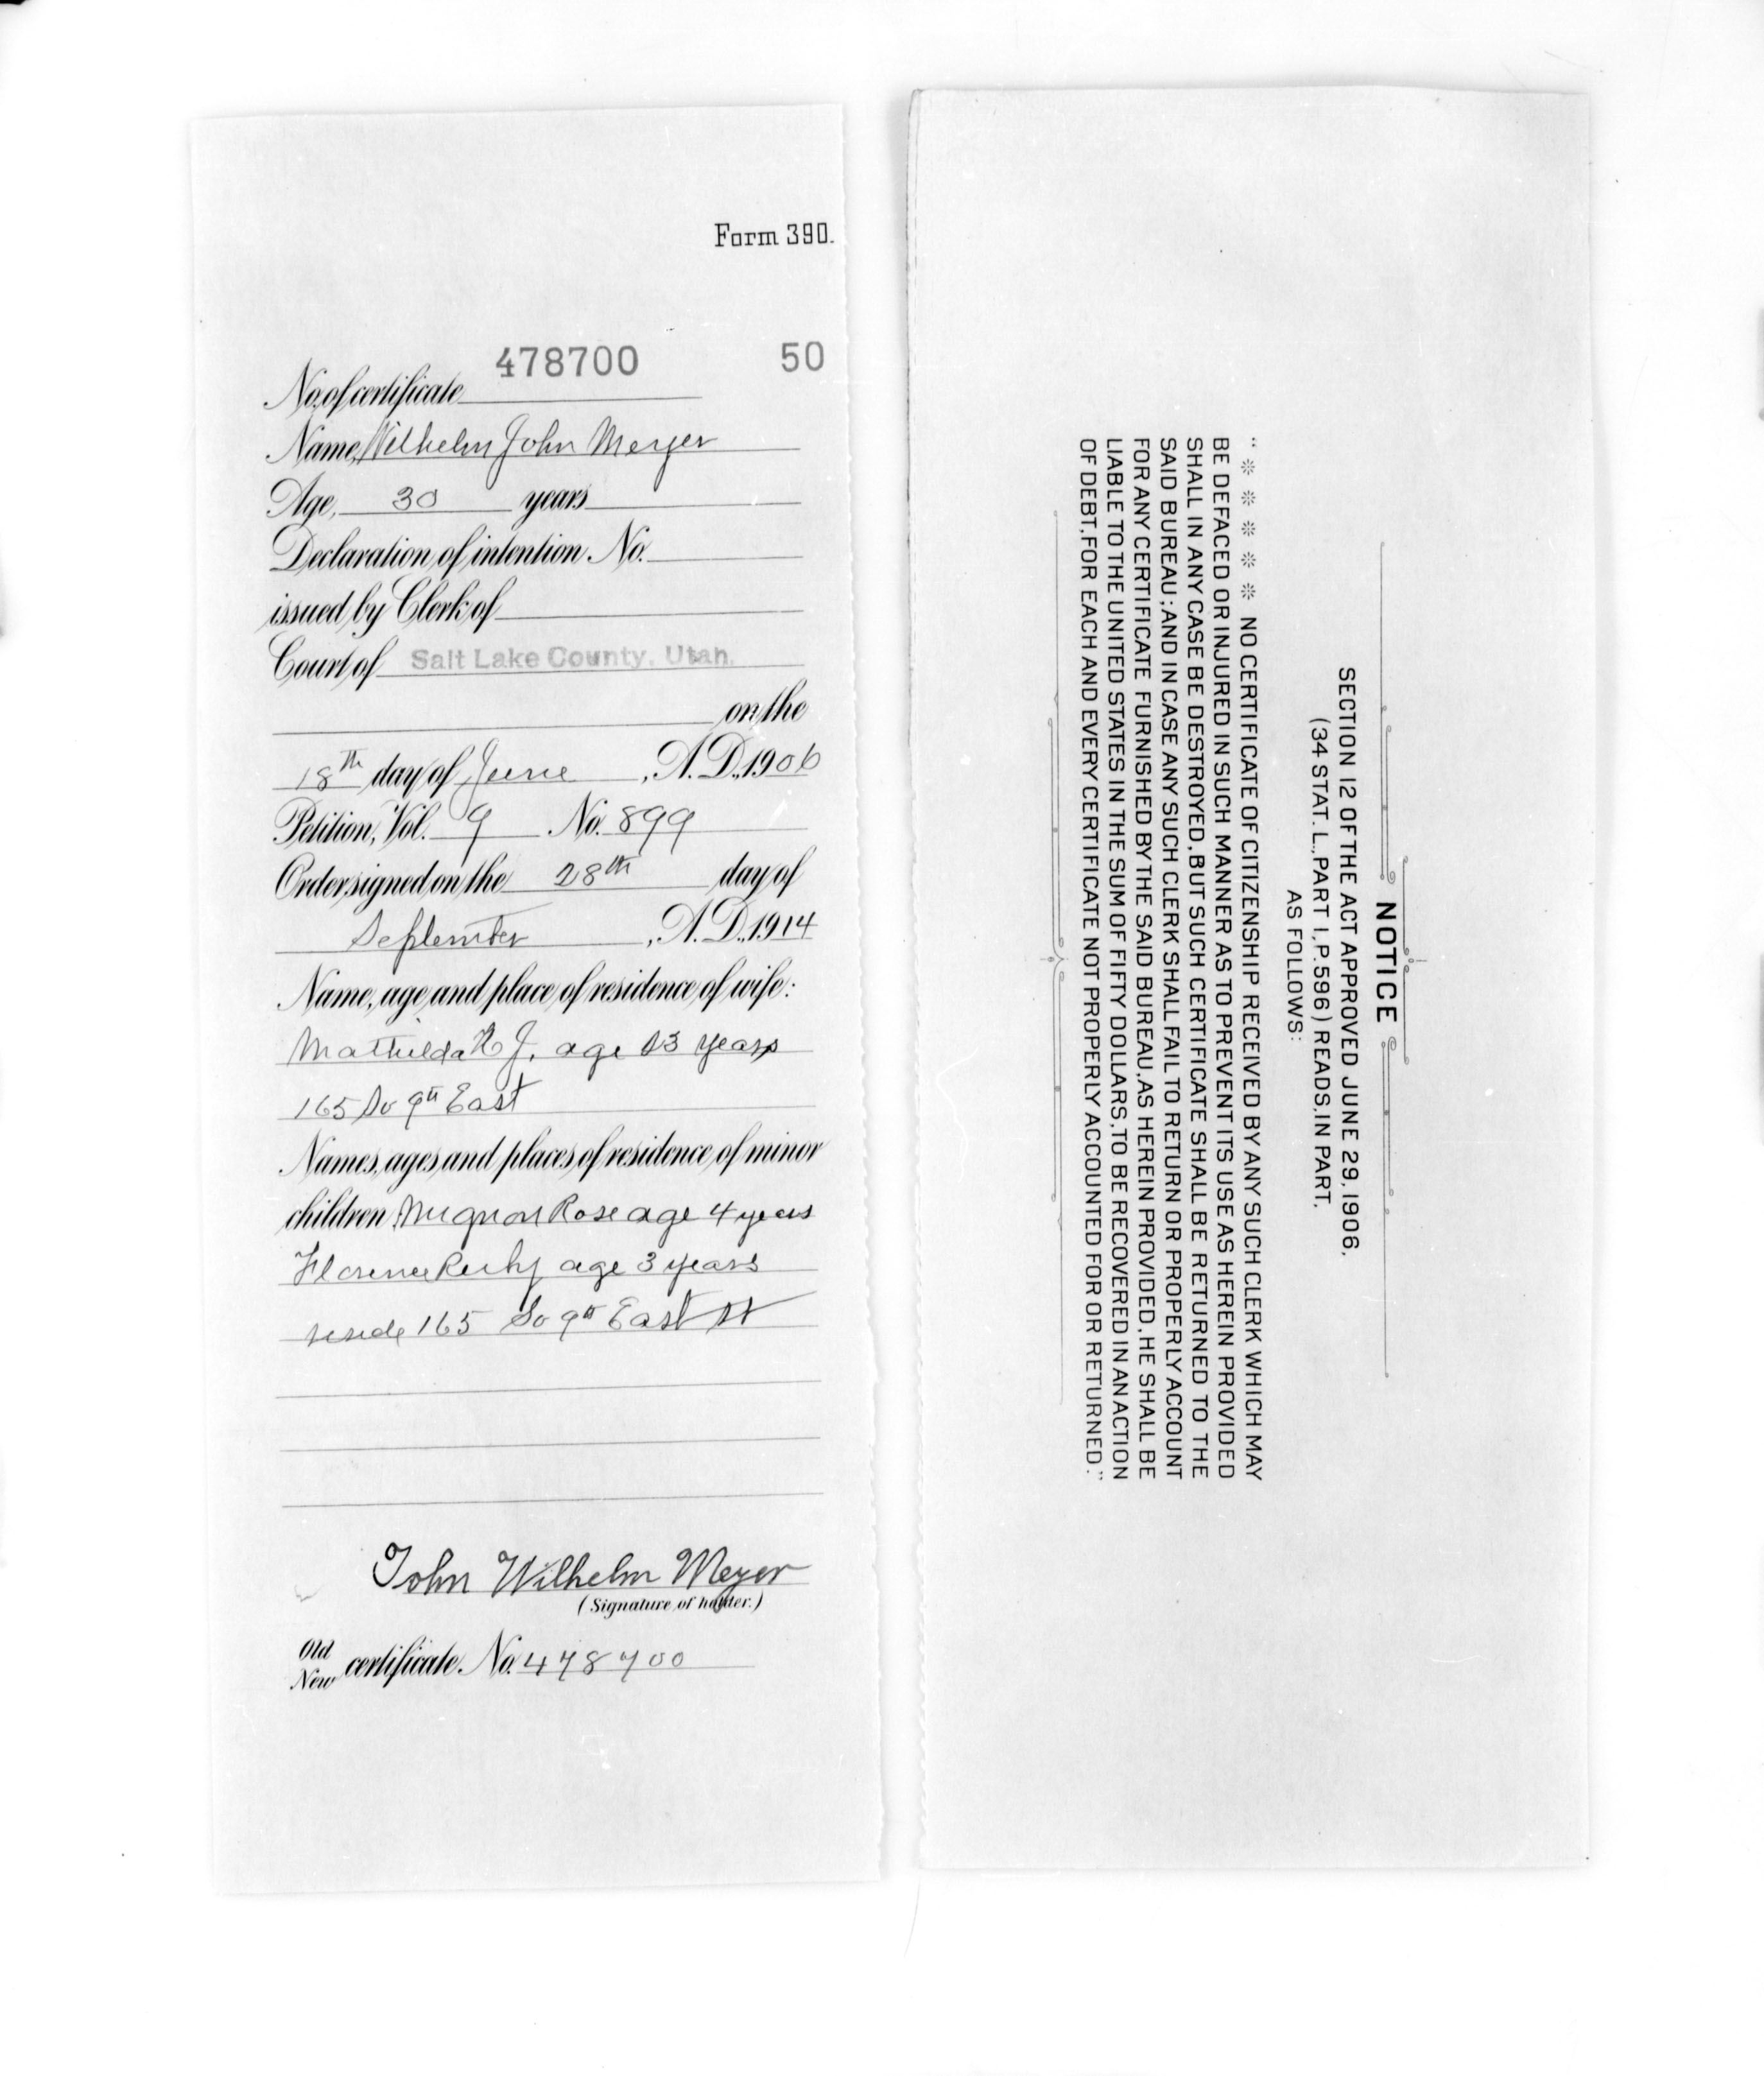 Form 390.
478700 50
No. of certificate
Name, Wilhelm John Meyer
Age, 30 years
Declaration of intention No.
issued by Clerk of
Court of Salt Lake County, Utah.
on the
18th day of June, A. D., 1906
Petition, Vol. 9 No. 899
Order signed on the 28th day of
September, A. D., 1914
Name, age and place of residence of wife:
Mathilda J. age years
165 So 9th East
Names, ages and places of residence of minor
children Mignon Rose age 4 years
Florence Ruby age 3 years
reside 165 So 9th East St
John Wilhelm Meyer
(Signature of holder.)
Old
New certificate. No. 478700
NOTICE
SECTION 12 OF THE ACT APPROVED JUNE 29, 1906,
(34 STAT. L., PART I, P. 596) READS, IN PART,
AS FOLLOWS:
" * * * * * NO CERTIFICATE OF CITIZENSHIP RECEIVED BY ANY SUCH CLERK WHICH MAY
BE DEFACED OR INJURED IN SUCH MANNER AS TO PREVENT ITS USE AS HEREIN PROVIDED
SHALL IN ANY CASE BE DESTROYED, BUT SUCH CERTIFICATE SHALL BE RETURNED TO THE
SAID BUREAU; AND IN CASE ANY SUCH CLERK SHALL FAIL TO RETURN OR PROPERLY ACCOUNT
FOR ANY CERTIFICATE FURNISHED BY THE SAID BUREAU, AS HEREIN PROVIDED, HE SHALL BE
LIABLE TO THE UNITED STATES IN THE SUM OF FIFTY DOLLARS, TO BE RECOVERED IN AN ACTION
OF DEBT, FOR EACH AND EVERY CERTIFICATE NOT PROPERLY ACCOUNTED FOR OR RETURNED."